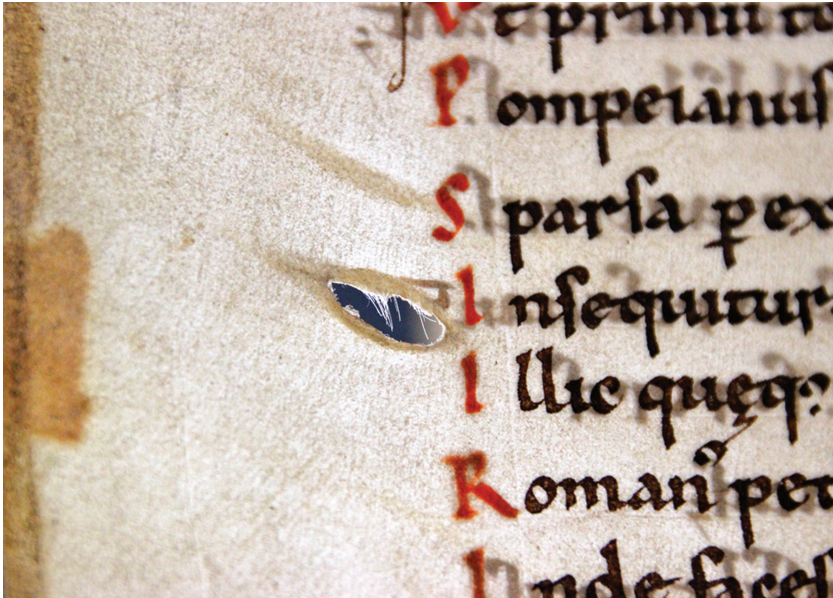 Vt primū tu
Pompeianus
Sparsa ꝑ ex
Insequitur
Illic quęq;
Romanꝰ pet
Inde faces